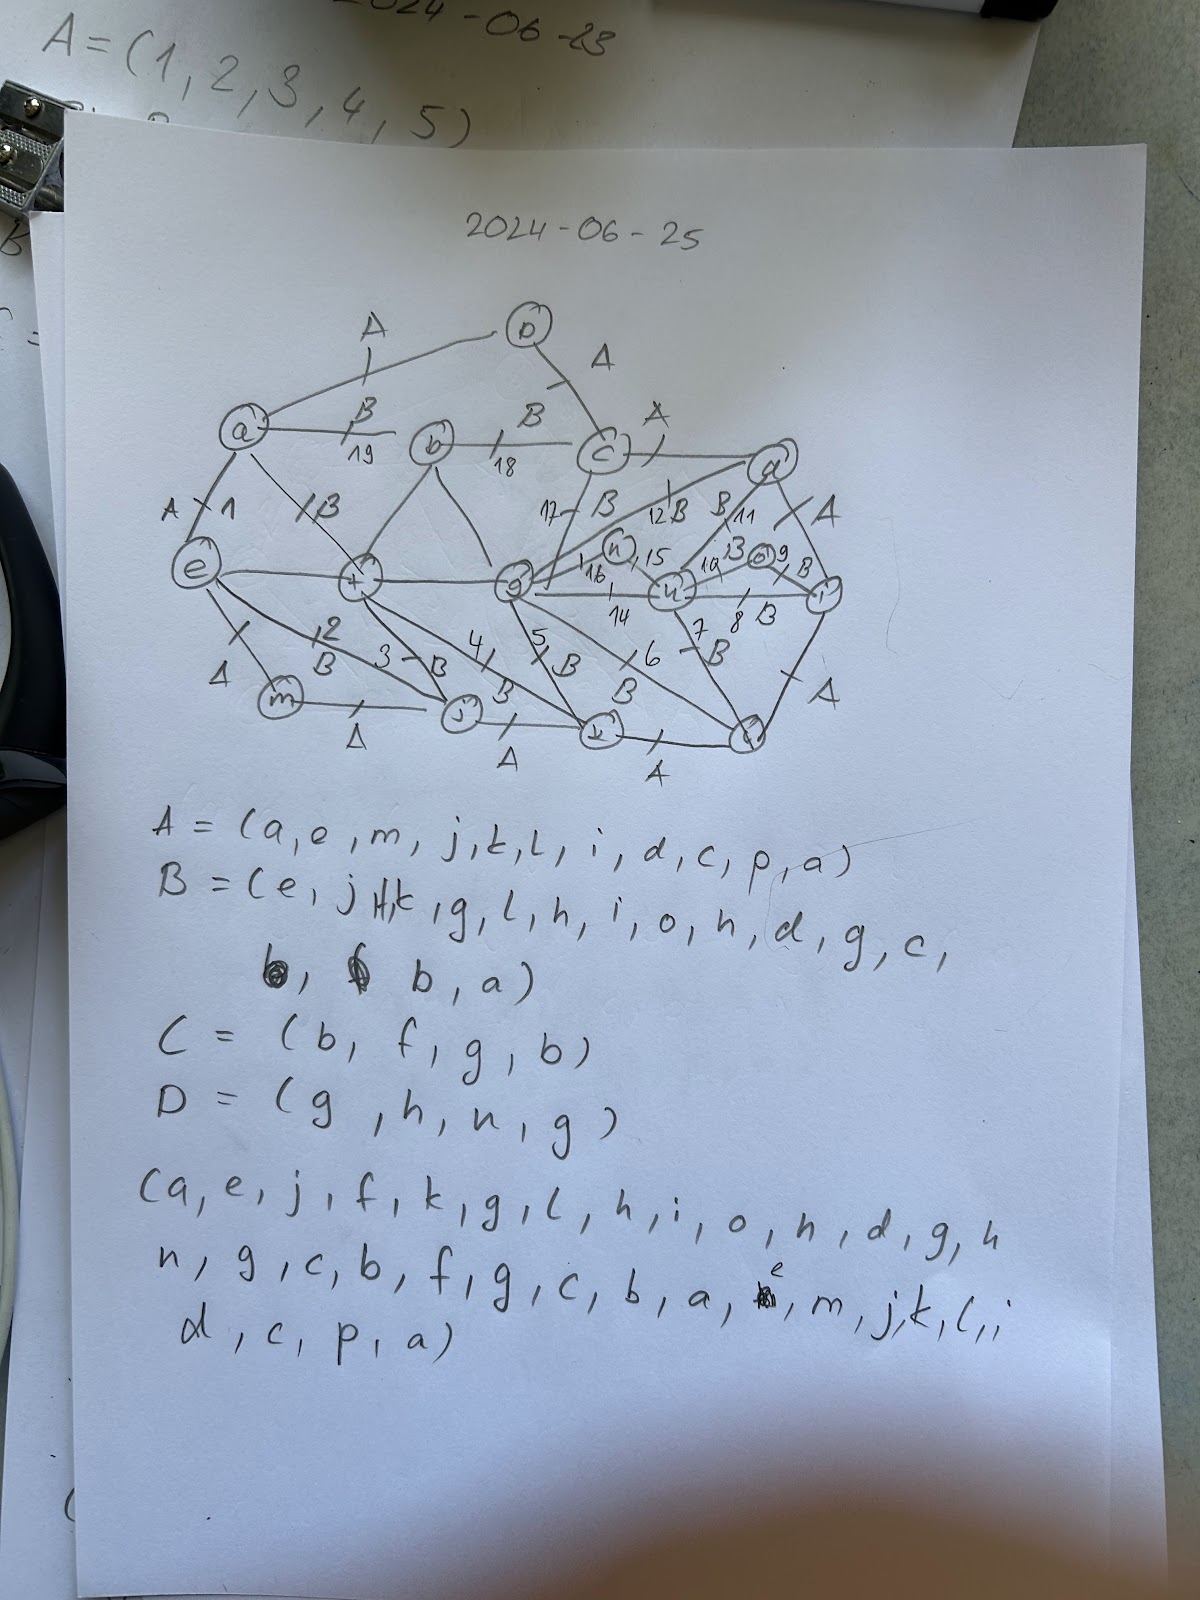 2024-06-23
A = (1, 2, 3, 4, 5)
2024-06-25
p
A
A
a
B
19
b
B
18
c
A
d
A
1
B
17
B
12
B
B
11
A
e
f
g
16
n
15
14
h
10
B
o
9
B
8
B
i
A
2
B
3
B
4
B
5
B
6
B
7
B
A
m
A
j
A
k
A
l
A = (a, e, m, j, k, l, i, d, c, p, a)
B = (e, j, f, k, g, l, h, i, o, h, d, g, c,
b, a)
C = (b, f, g, b)
D = (g, h, n, g)
(a, e, j, f, k, g, l, h, i, o, h, d, g, h
n, g, c, b, f, g, c, b, a, e, m, j, k, l, i
d, c, p, a)